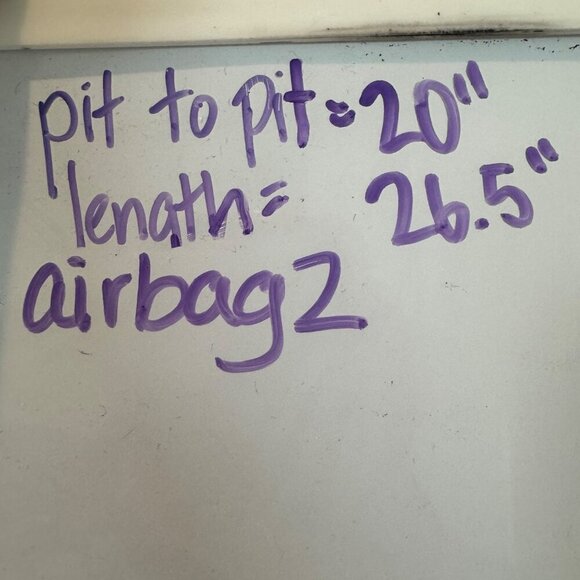 pit to pit = 20"
length = 26.5"
airbag2